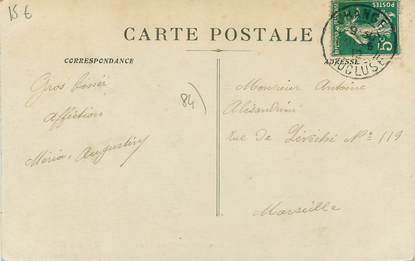 15 6
CARTE POSTALE
CORRESPONDANCE
ADRESSE
POSTES
5
ORANGE
VAUCLUSE
84)
Gros
Affection
Augustin
Monsieur Antoine
Alexandrini
rue de N° 119
Marseille